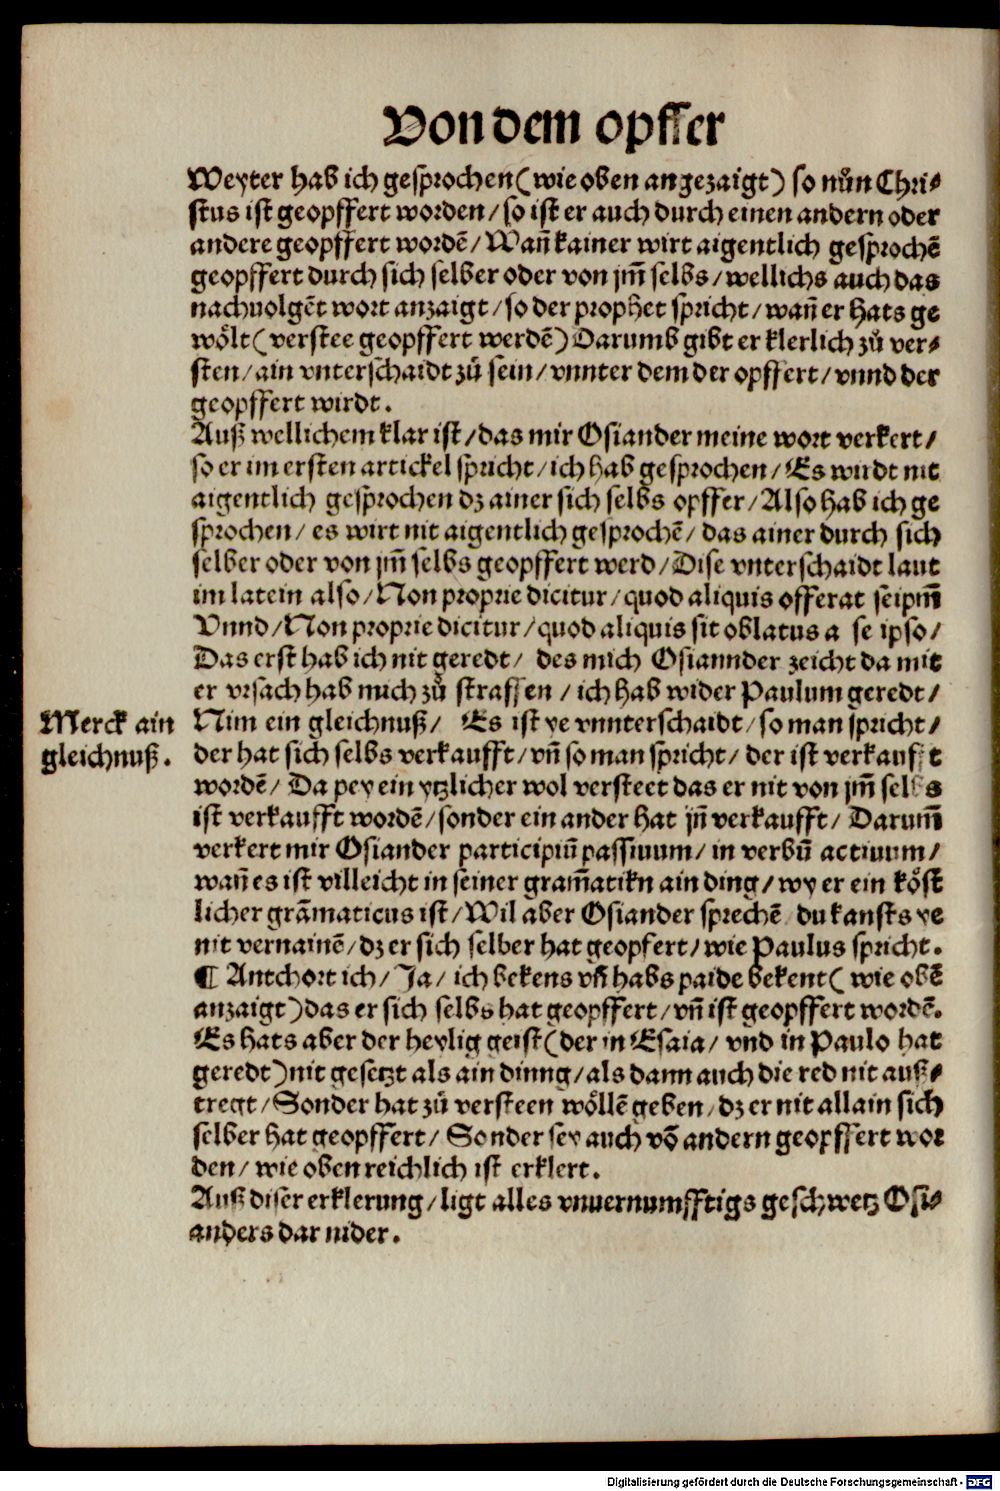 Von dem opffer
Weyter hab ich gesprochen (wie oben angezaigt) so nůn Chri⸗
stus ist geopffert worden / so ist er auch durch einen andern oder
andere geopffert wordē / Wañ kainer wirt aigentlich gesprochē
geopffert durch sich selber oder von jm̃ selbs / wellichs auch das
nachuolgēt wort anzaigt / so der prophet spricht / wañ er hats ge
wölt (verstee geopffert werdē) Darumb gibt er klerlich zů ver⸗
sten / ain vnterschaidt zů sein / vnnter dem der opffert / vnnd der
geopffert wirdt.
Auß wellichem klar ist / das mir Osiander meine wort verkert /
so er im ersten artickel spricht / ich hab gesprochen / Es wirdt nit
aigentlich gesprochen dz ainer sich selbs opffer / Also hab ich ge
sprochen / es wirt nit aigentlich gesprochē / das ainer durch sich
selber oder von jm̃ selbs geopffert werd / Dise vnterschaidt laut
im latein also / Non proprie dicitur / quod aliquis offerat seipm̃
Vnnd / Non proprie dicitur / quod aliquis sit oblatus a se ipso /
Das erst hab ich nit geredt / des mich Osiannder zeicht da mit
er vrsach hab mich zů straffen / ich hab wider Paulum geredt /
Merck ain gleichnuß.
Nim ein gleichnuß / Es ist ye vnnterschaidt / so man spricht /
der hat sich selbs verkaufft / vñ so man spricht / der ist verkaufft
wordē / Da pey ein ytzlicher wol versteet das er nit von jm̃ selbs
ist verkaufft wordē / sonder ein ander hat jñ verkaufft / Darum̃
verkert mir Osiander participiū passiuum / in verbū actiuum /
wañ es ist villeicht in seiner gram̃atikn ain ding / wy er ein köst
licher grãmaticus ist / Wil aber Osiander sprechē du kansts ye
nit vernainē / dz er sich selber hat geopfert / wie Paulus spricht.
¶ Antwort ich / Ja / ich bekens vñ habs paide bekent (wie obē
anzaigt) das er sich selbs hat geopffert / vñ ist geopffert wordē.
Es hats aber der heylig geist (der in Esaia / vnd in Paulo hat
geredt) nit gesetzt als ain dinng / als dann auch die red nit auß⸗
tregt / Sonder hat zů versteen wöllē geben / dz er nit allain sich
selber hat geopffert / Sonder sey auch võ andern geopffert wor
den / wie oben reichlich ist erklert.
Auß diser erklerung / ligt alles vnuernumfftigs geschwetz Osi⸗
anders dar nider.
Digitalisierung gefördert durch die Deutsche Forschungsgemeinschaft - DFG